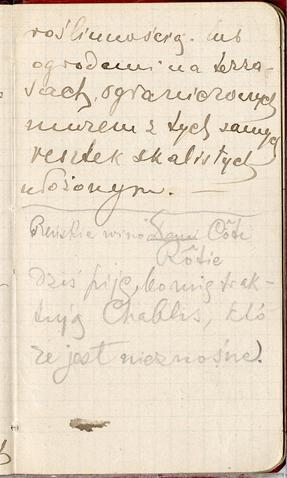 roślinnością. lub
ogrodami na terra-
sach, ograniczonych
murem z tych samych
resztek skalistych
ułożonym. —
wino Côte
Rôtie
dziś piję, bo mię trak-
tują Chablis, któ
re jest nieznośne.